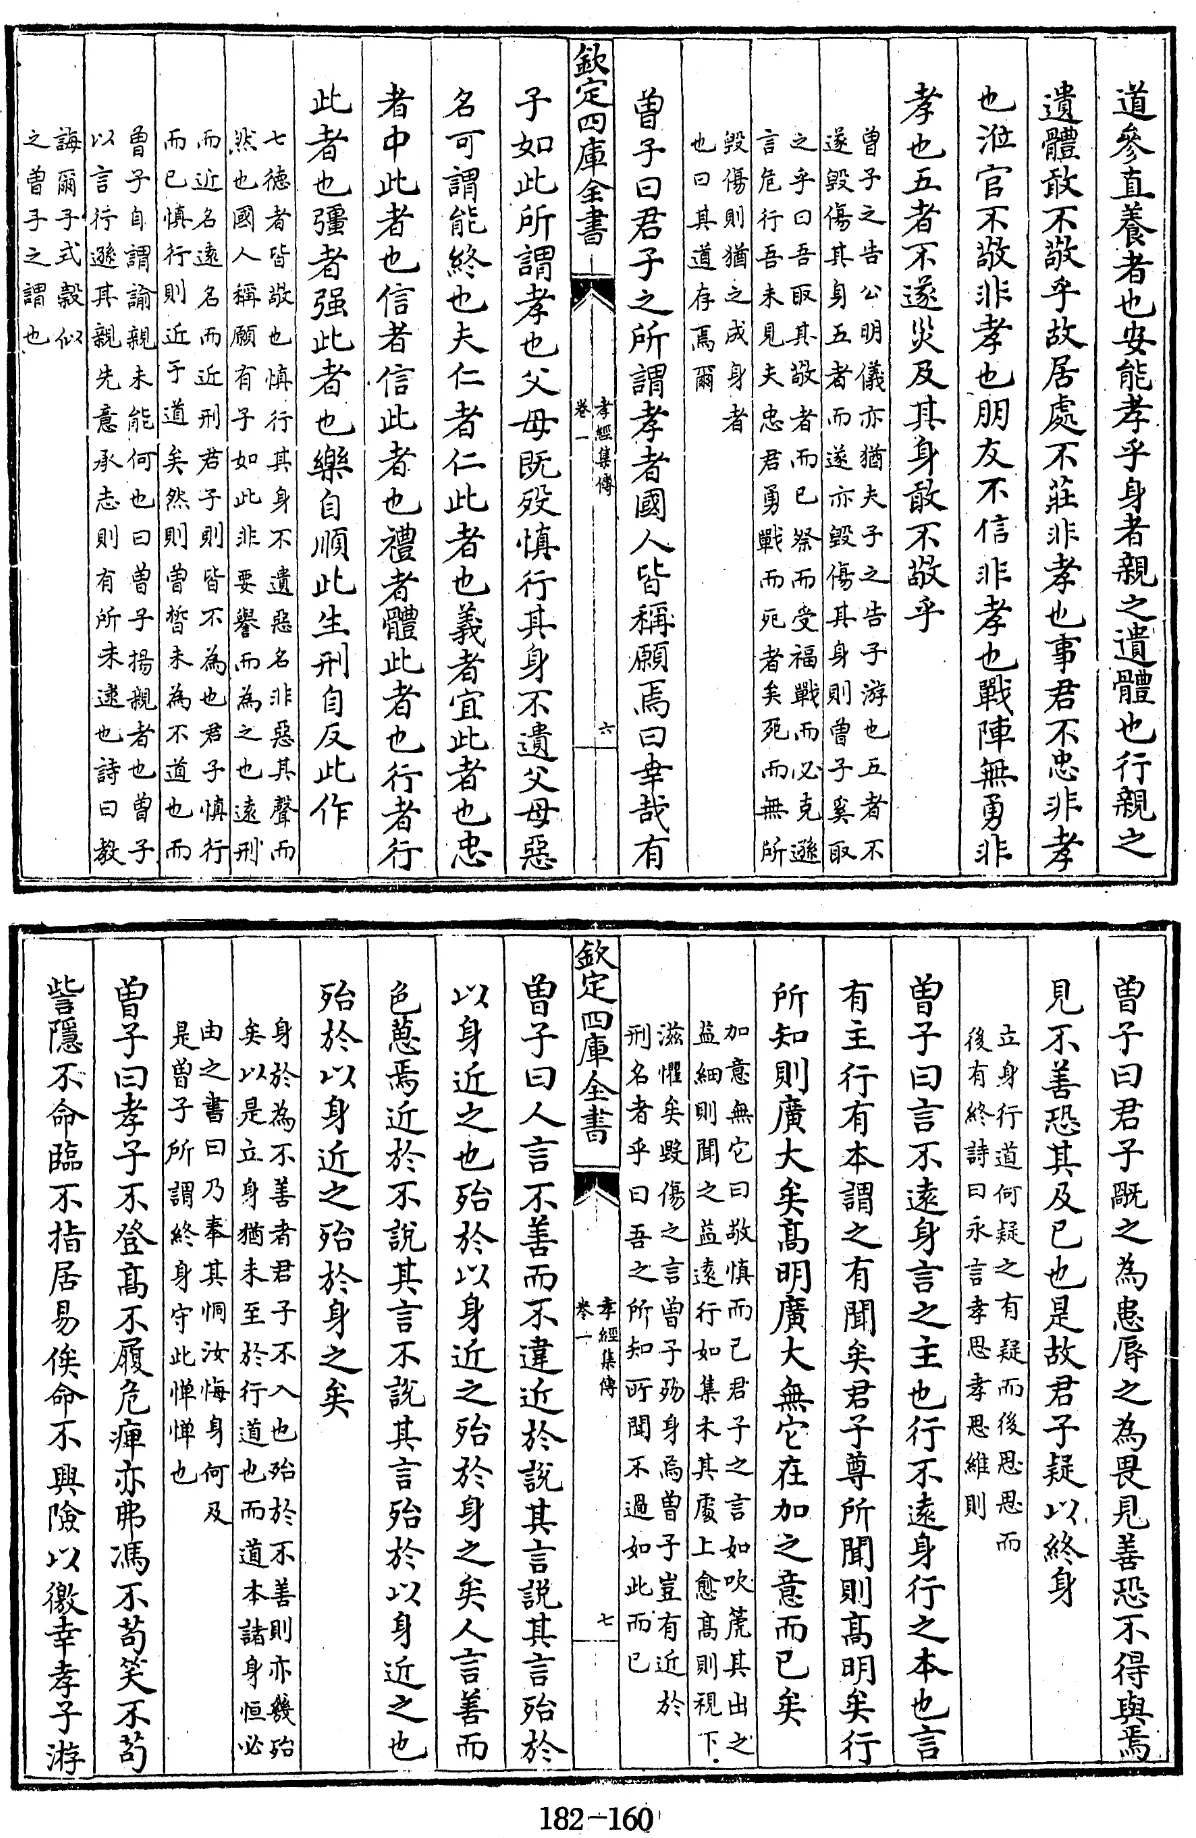 道參直養者也安能孝乎身者親之遺體也行親之
遺體敢不敬乎故居處不莊非孝也事君不忠非孝
也涖官不敬非孝也朋友不信非孝也戰陣無勇非
孝也五者不遂災及其身敢不敬乎
曽子之告公明儀亦猶夫子之告子游也五者不
遂毀傷其身五者而遂亦毀傷其身則曽子奚取
之乎曰吾取其敬者而已祭而受福戰而必克遜
言危行吾未見夫忠君勇戰而死者矣死而無所
毀傷則猶之成身者
也曰其道存焉爾
曽子曰君子之所謂孝者國人皆稱願焉曰幸哉有
欽定四庫全書
孝經集傳
卷一
六
子如此所謂孝也父母既歿慎行其身不遺父母惡
名可謂能終也夫仁者仁此者也義者宜此者也忠
者中此者也信者信此者也禮者體此者也行者行
此者也彊者强此者也樂自順此生刑自反此作
七德者皆敬也慎行其身不遺惡名非惡其聲而
然也國人稱願有子如此非要譽而為之也遠刑
而近名遠名而近刑君子則皆不為也君子慎行
而已慎行則近于道矣然則曽晳未為不道也而
曽子自謂諭親未能何也曰曽子揚親者也曽子
以言行遜其親先意承志則有所未逮也詩曰教
誨爾子式榖似
之曽子之謂也
曽子曰君子既之為患辱之為畏見善恐不得與焉
見不善恐其及已也是故君子疑以終身
立身行道何疑之有疑而後思思而
後有終詩曰永言孝思孝思維則
曽子曰言不遠身言之主也行不遠身行之本也言
有主行有本謂之有聞矣君子尊所聞則髙明矣行
所知則廣大矣髙明廣大無它在加之意而已矣
加意無它曰敬慎而已君子之言如吹箎其出之
益細則聞之益遠行如集木其處上愈髙則視下
滋懼矣毀傷之言曽子歿身焉曽子豈有近於
刑名者乎曰吾之所知所聞不過如此而已
欽定四庫全書
孝經集傳
卷一
七
曽子曰人言不善而不違近於說其言說其言殆於
以身近之也殆於以身近之殆於身之矣人言善而
色葸焉近於不說其言不說其言殆於以身近之也
殆於以身近之殆於身之矣
身於為不善者君子不入也殆於不善則亦幾殆
矣以是立身猶未至於行道也而道本諸身恒必
由之書曰乃奉其恫汝悔身何及
是曽子所謂終身守此惮惮也
曽子曰孝子不登髙不履危痺亦弗馮不苟笑不苟
訾隱不命臨不指居易俟命不興險以徼幸孝子游
182-160